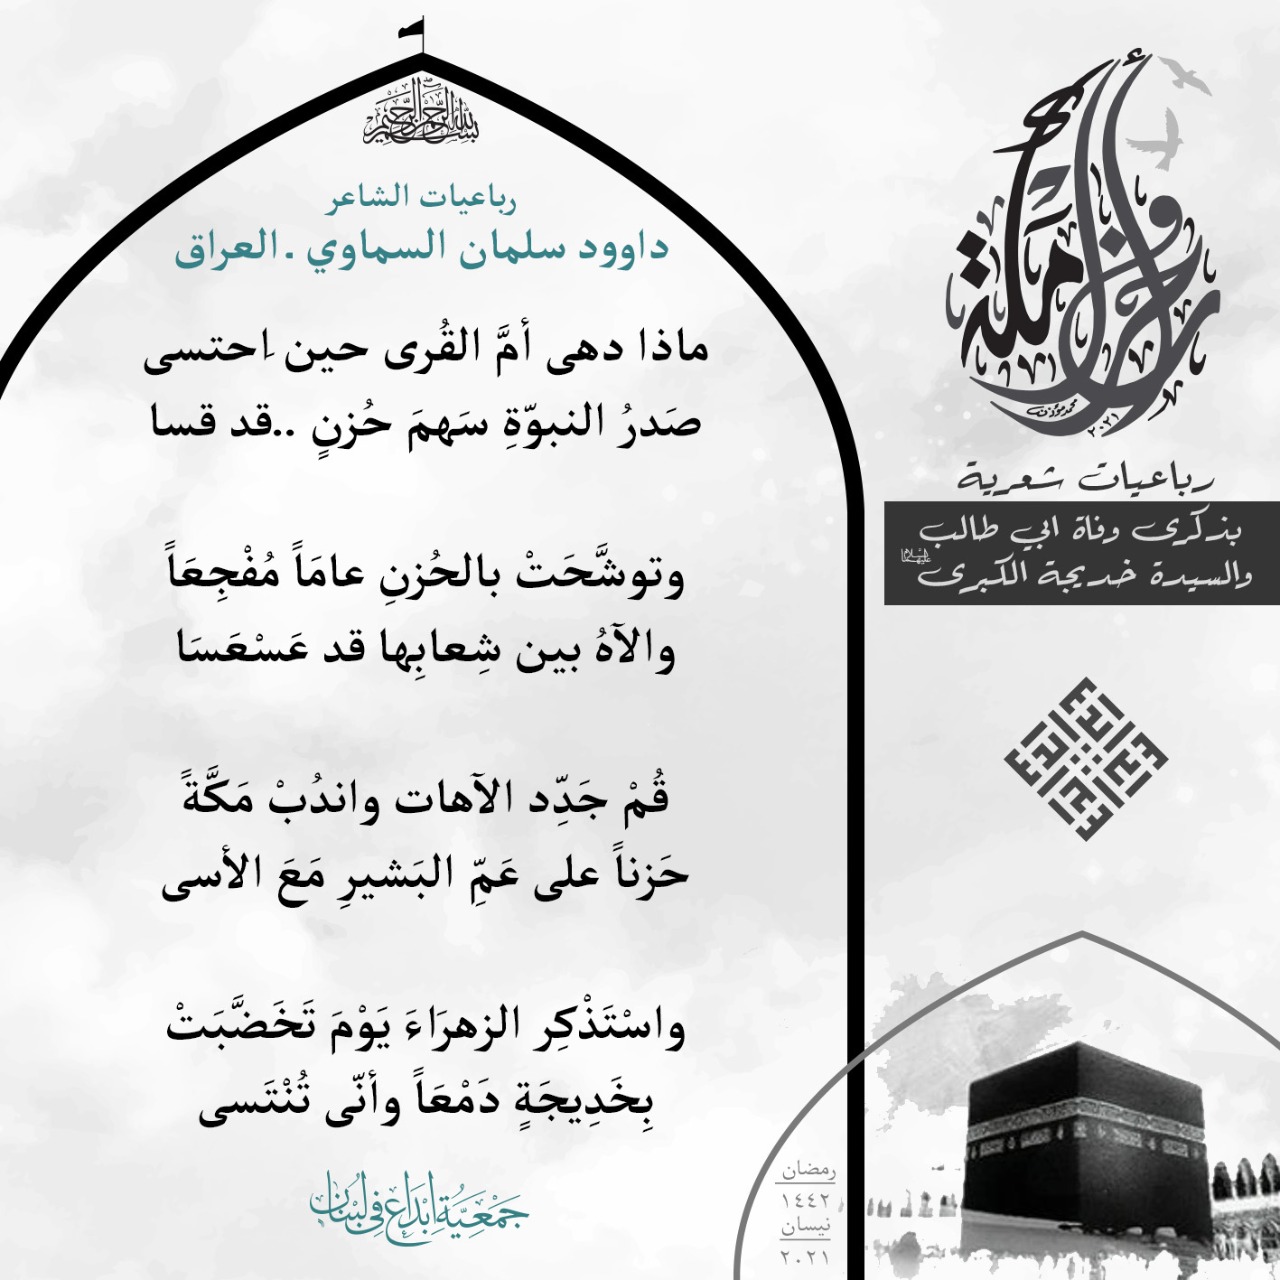 بسم الله الرحمن الرحيم
رباعيات الشاعر
داوود سلمان السماوي .العراق
ماذا دهى أمَّ القُرى حين اِحتسى
صَدرُ النبوّةِ سَهمَ حُزنٍ ..قد قسا
وتوشَّحَتْ بالحُزنِ عامَاً مُفْجِعَاً
والآهُ بين شِعابِها قد عَسْعَسَا
قُمْ جَدِّد الآهات واندُبْ مَكَّةً
حَزناً على عَمِّ البَشيرِ مَعَ الأسى
واسْتَذْكِر الزهرَاءَ يَوْمَ تَخَضَّبَتْ
بِخَدِيجَةٍ دَمْعَاً وأنّى تُنْتَسى
جَمْعِيَّةُ إبْدَاع فِي لُبْنَان
محمد مؤذن
٢٠٢١
رباعيات شعرية
بذكرى وفاة ابي طالب
والسيدة خديجة الكبرى عليهما السلام
رمضان
١٤٤٢
نيسان
٢٠٢١